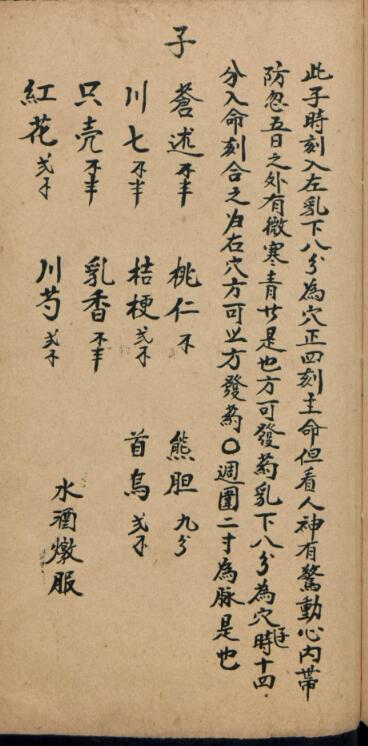 此子時刻入左乳下八分為穴正四刻主命但看人神有驚動心內帶
防忽五日之外有微寒青廿是也方可發药乳下八分為穴時十四
分入命刻合之为右穴方可止方發药〇週圍二寸為脉是也
子
蒼述不半 桃仁不 熊胆九分
川七不半 桔梗弍不 首烏弍不
只壳不半 乳香不半 水酒燉服
紅花弍不 川芎弍不